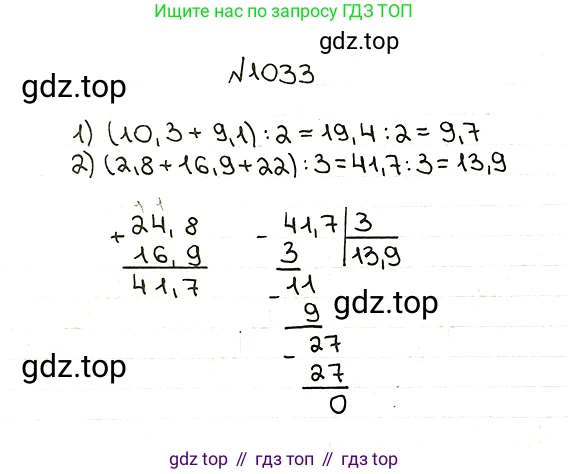 Ищите нас по запросу ГДЗ ТОП
gdz.top
gdz.top
№1033
1) (10,3 + 9,1) : 2 = 19,4 : 2 = 9,7
2) (2,8 + 16,9 + 22) : 3 = 41,7 : 3 = 13,9
1 1
+ 24,8
16,9
41,7
- 41,7 | 3
3 13,9
- 11
9
- 27
27
0
gdz.top
gdz.top
gdz.top // гдз топ // гдз.top